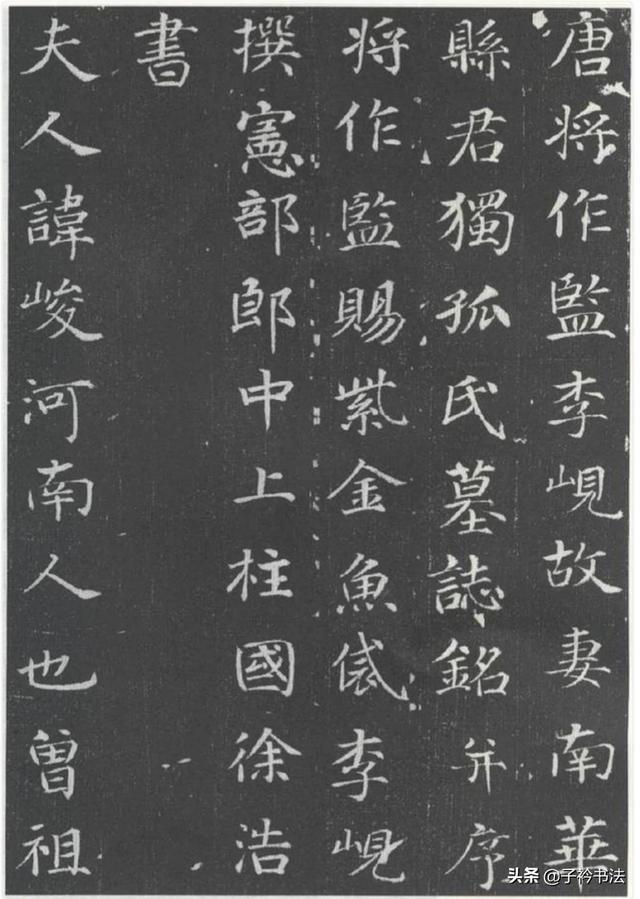 唐将作監李峴故妻南華
縣君獨孤氏墓誌銘并序
将作監賜紫金魚袋李峴
撰憲部郎中上柱國徐浩
書
夫人諱峻河南人也曾祖
头条@子衿书法